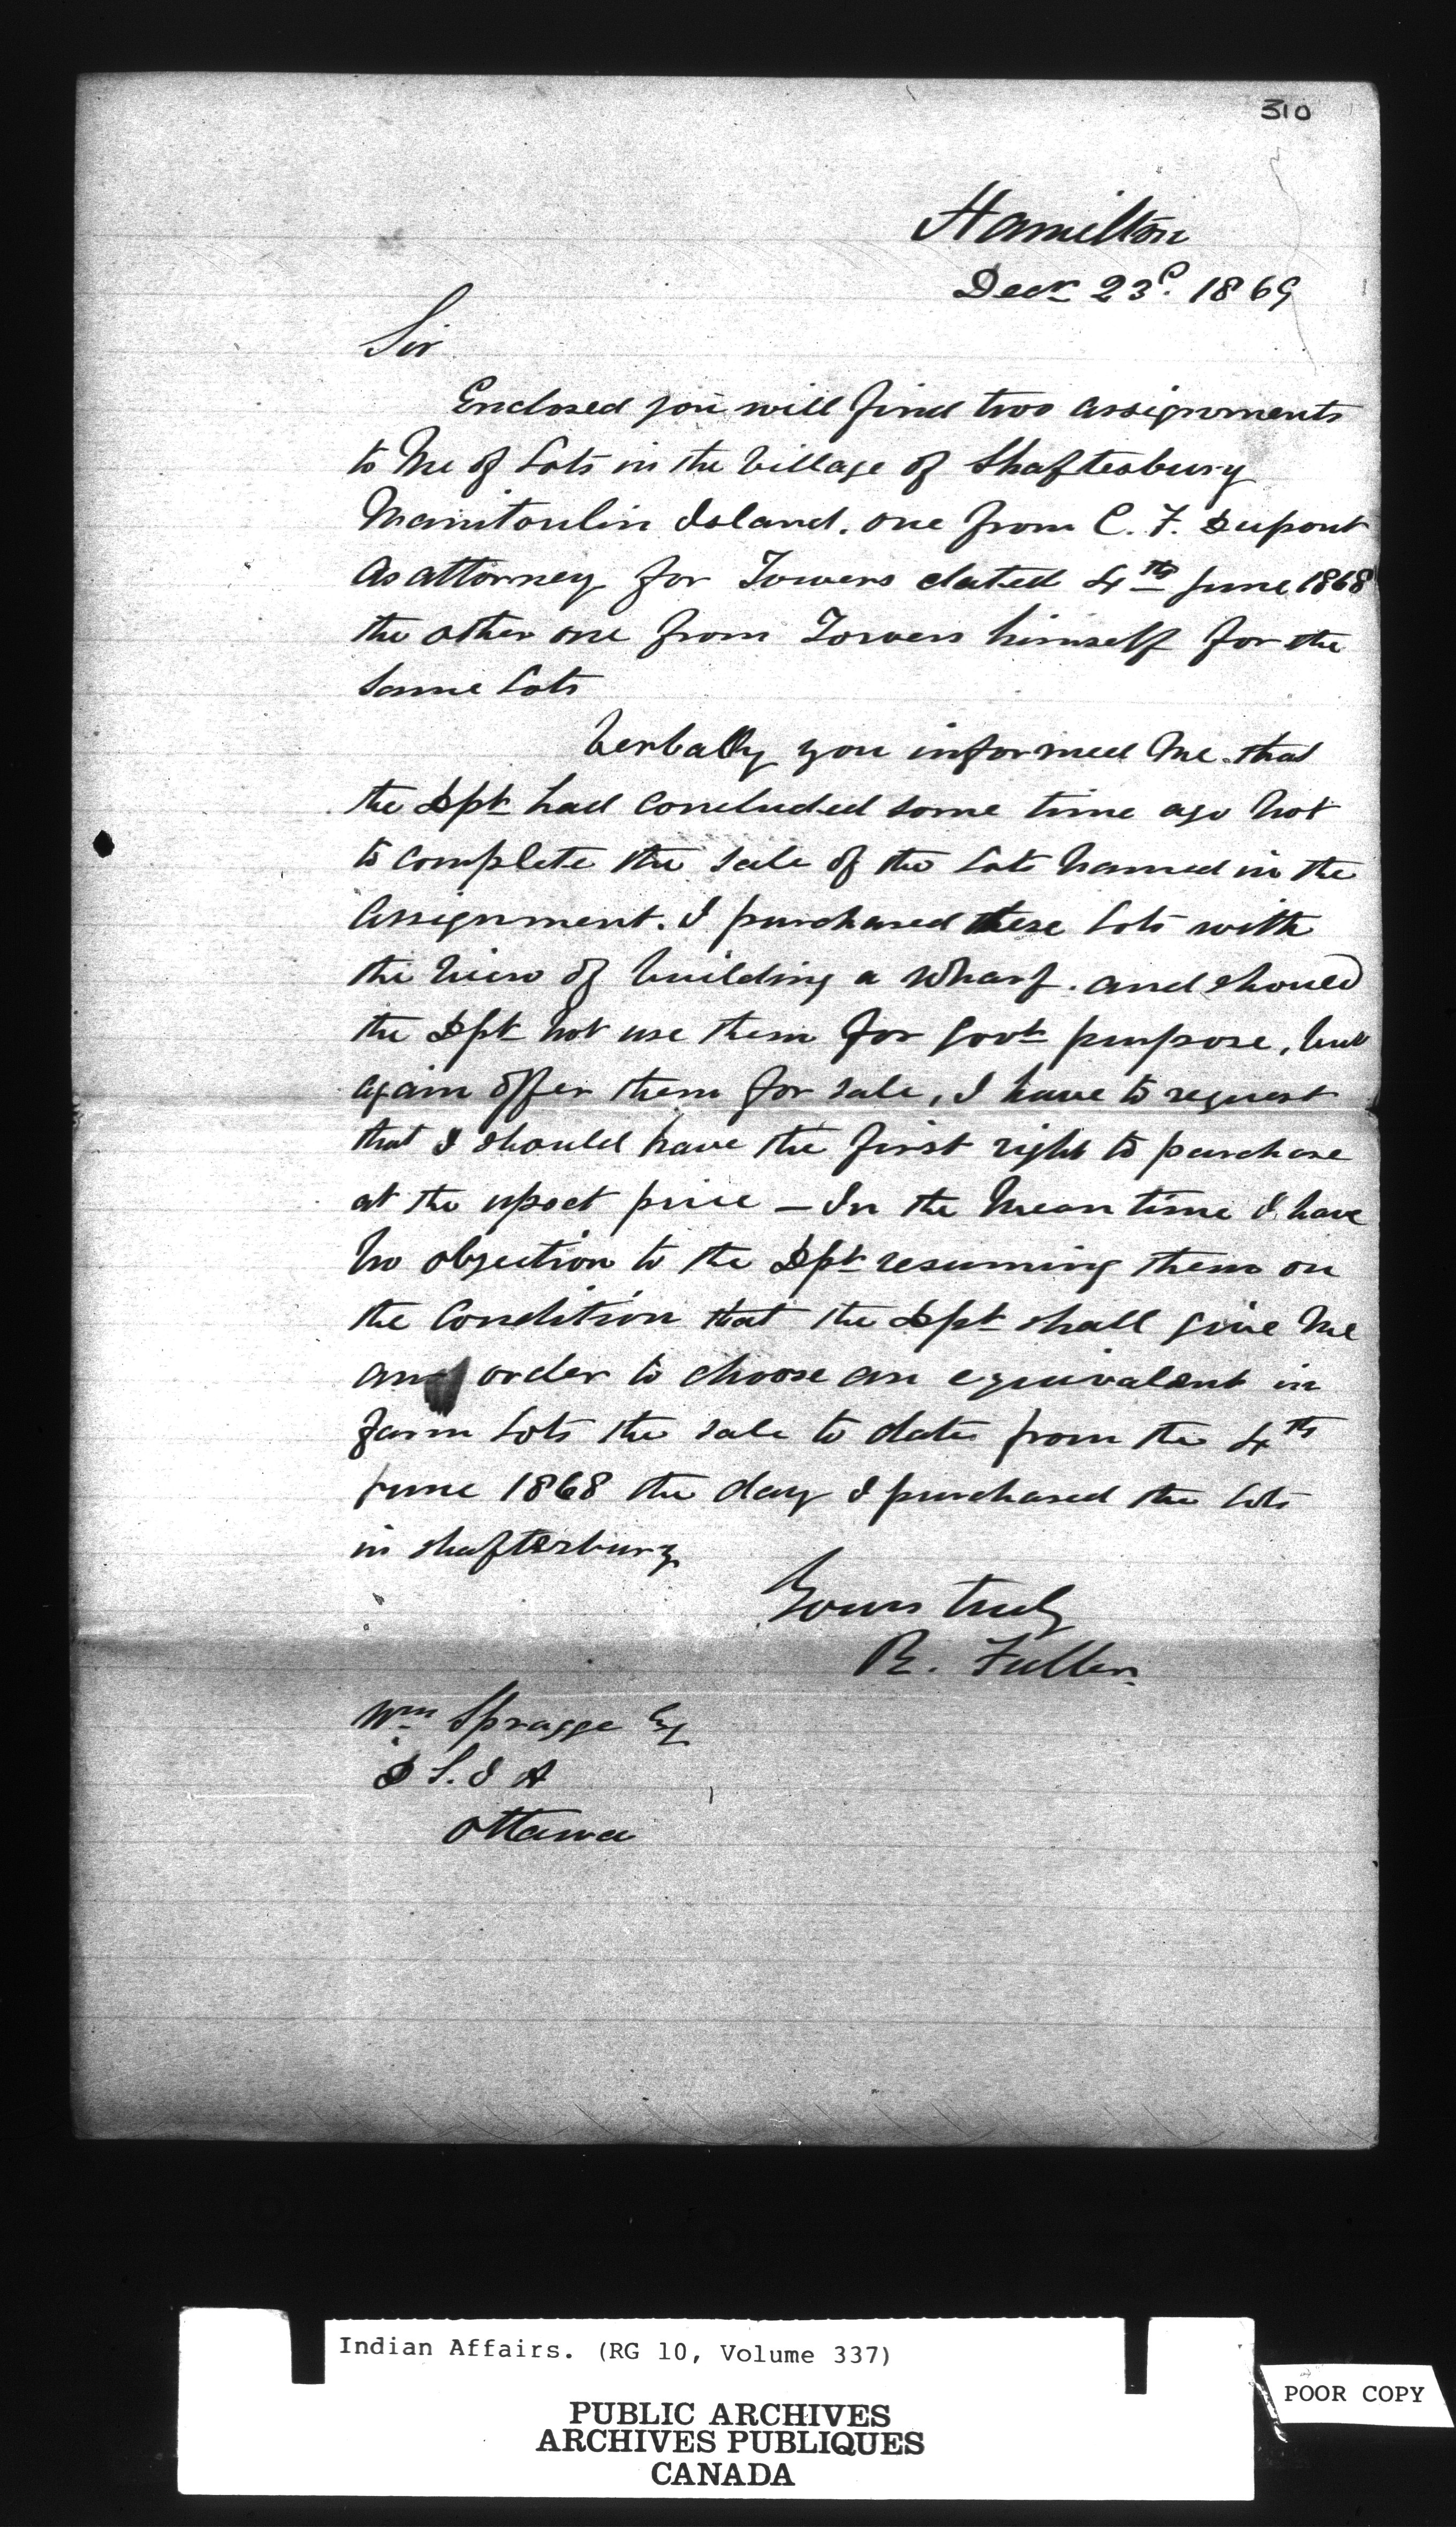 310
Hamilton
Decr 23d. 1869
Sir
Enclosed you will find two assignments
to Me of Lots in the Village of Shaftesbury
Manitoulin Island. one from C. F. Dupont
As attorney for Towers dated 4th June 1868
the other one from Towers himself for the
Same Lots
Verbally you informed Me that
the Dpt had Concluded some time ago Not
to complete the sale of the Lots Named in the
Assignment. I purchased these Lots with
the View of building a Wharf. and should
the Dpt Not use them for Govt purpose, but
again offer them for sale, I have to request
that I should have the first right to purchase
at the upset price — In the Mean time I have
No objection to the Dpt resuming them on
the Condition that the Dpt shall give Me
an order to choose an equivalent in
farm Lots the sale to date from the 4th
June 1868 the day I purchased the Lots
in Shaftesbury
Yours truly
R. Fuller
Wm Spragge Esq
D S. I A
Ottawa
Indian Affairs. (RG 10, Volume 337)
PUBLIC ARCHIVES
ARCHIVES PUBLIQUES
CANADA
POOR COPY